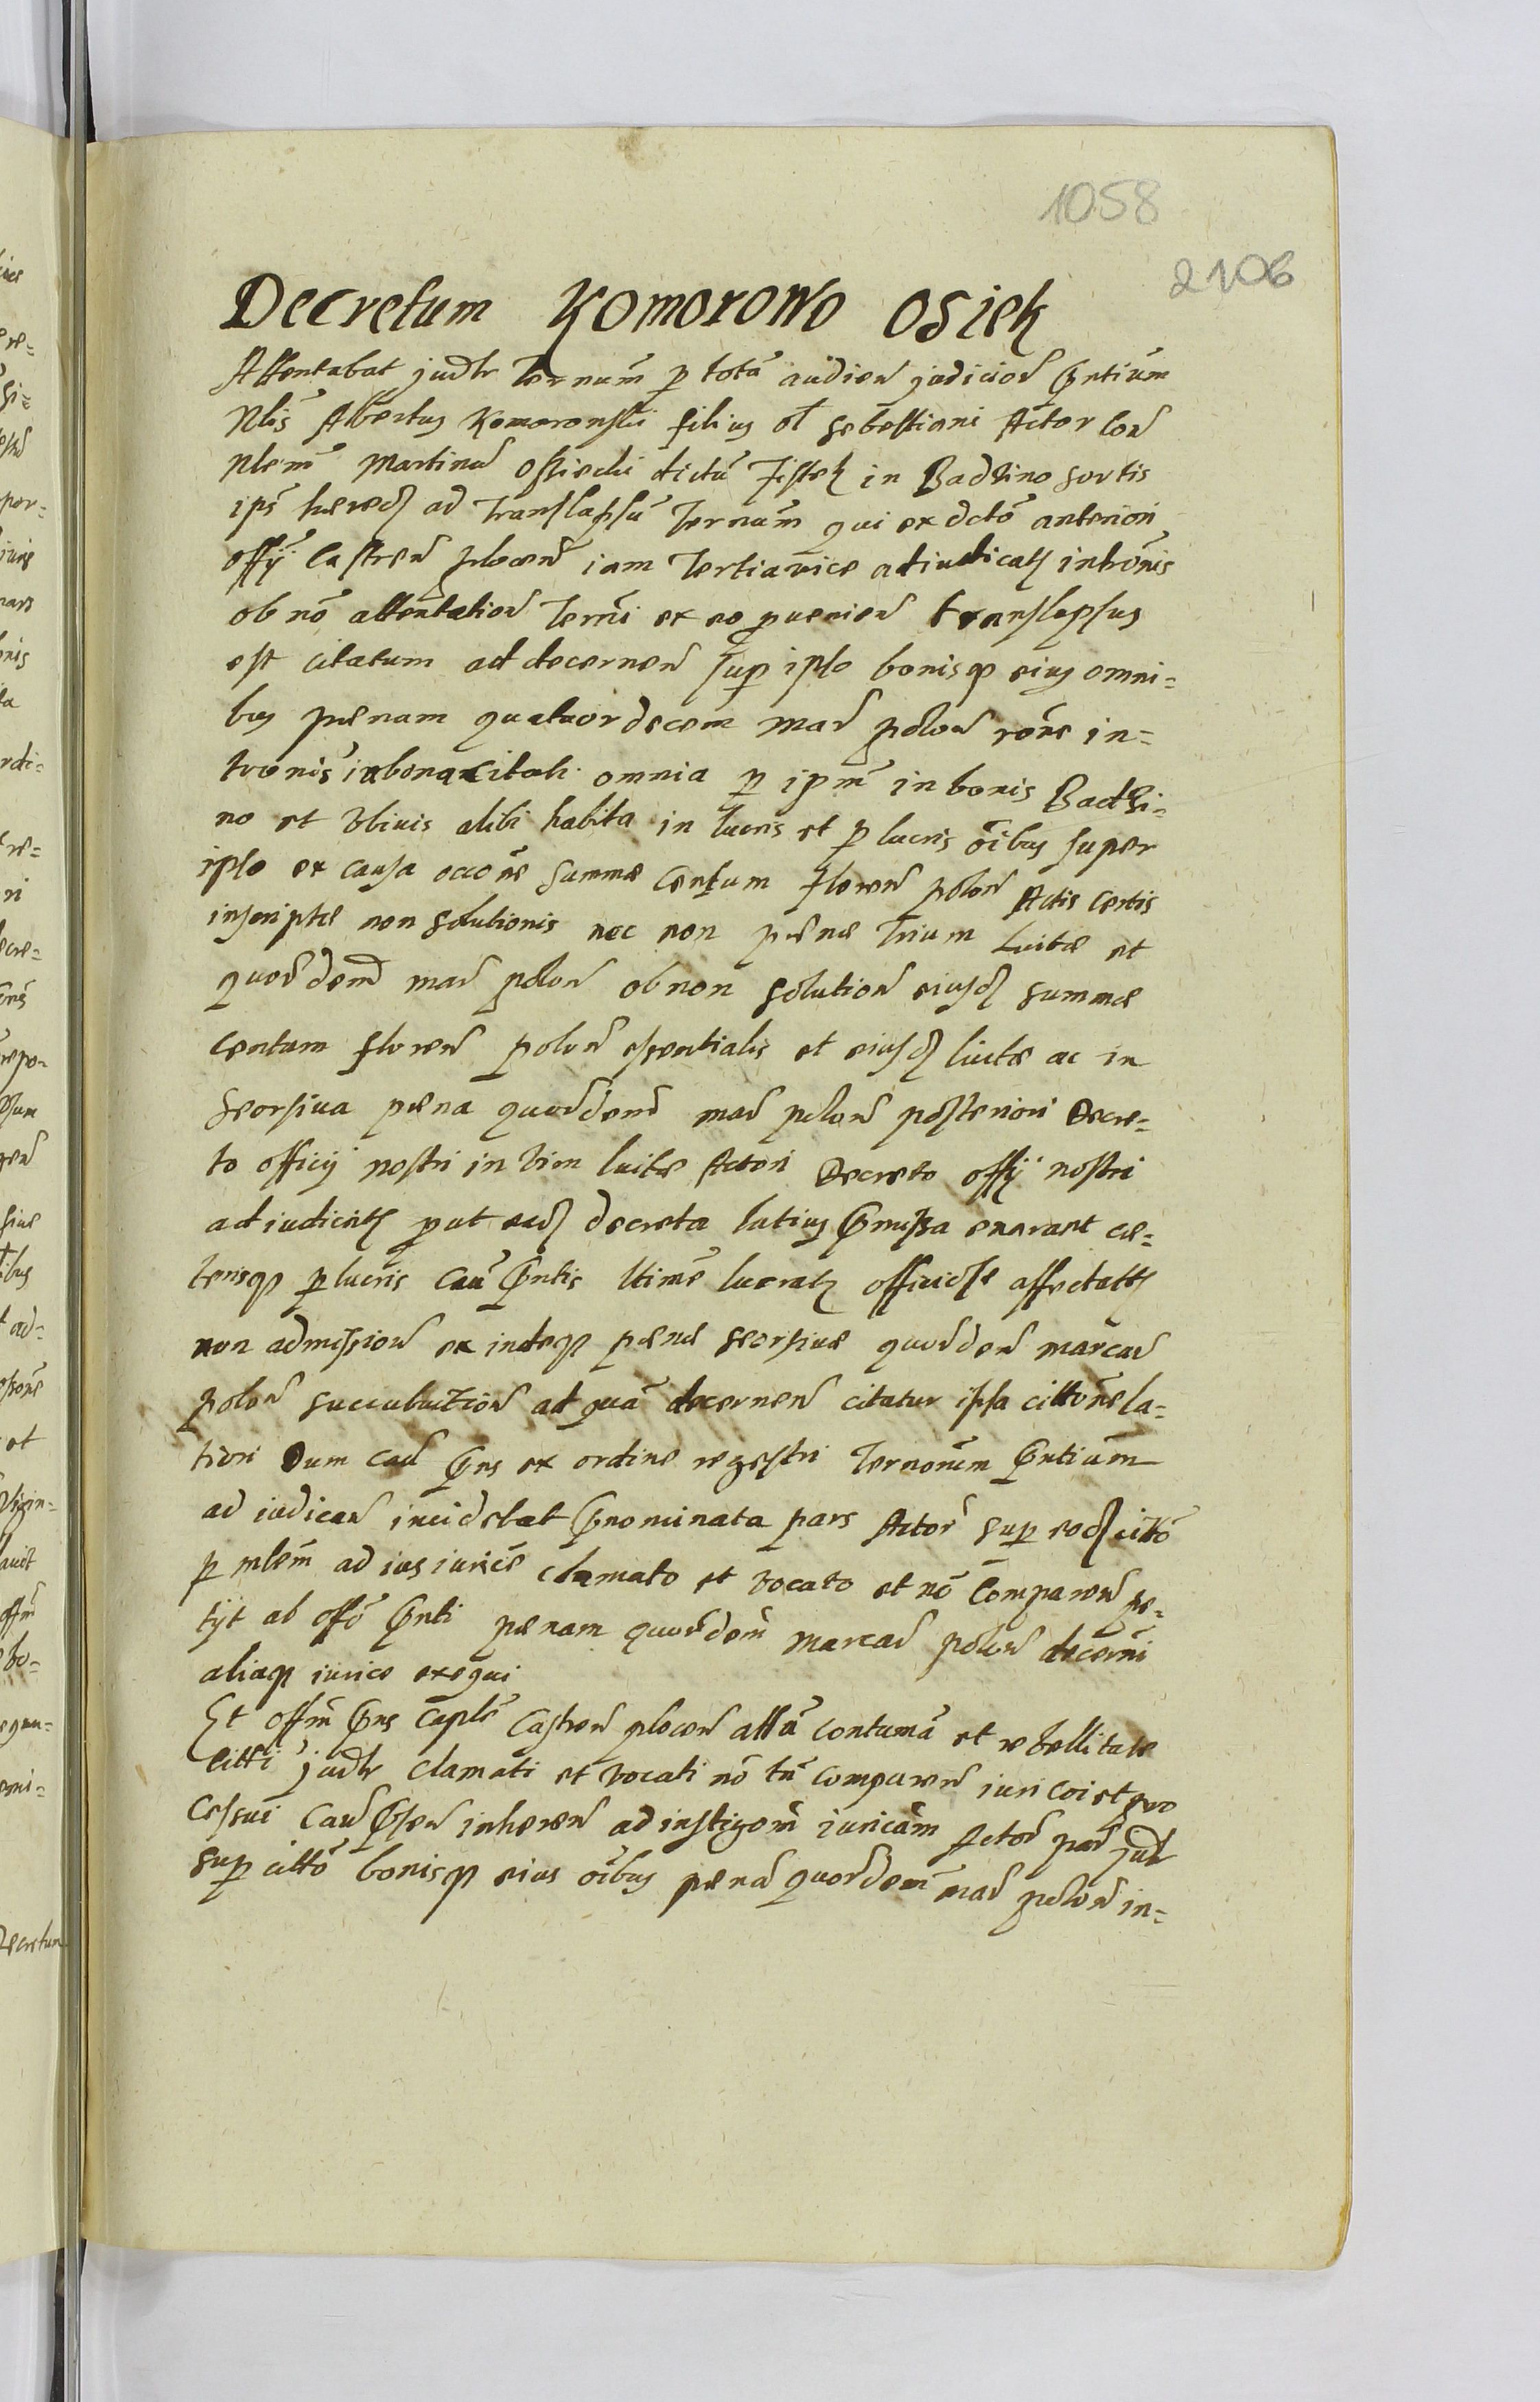 1058
2106
Decretum Komorowo Osiek
Attentabat judlr Ternum̃ p totã audien̄ judicior̄ p̄ntium̃
Nlis̃ Albertus Komoronski filius ol̃ sebestiani Actor Con̄
Nlem̃ Martinũ Ossiecki dictũ Fistek in Badzino sortis
ips̃ hæred̃ ad translapsũ Ternum̃ qui ex dctõ anteriori
offÿ Castren̄ plocen̄ iam Tertiavice adiudicatę intrõnis
ob nõ attentation̄ Term̃i ex eo prouenien̄ translapsus
est citatum ad decernen̄ sup ipso bonisq eius omni=
bus pænam quatuordecem mar̄ polon̄ rõne in=
trõnis in bona citati omnia p ipm̃ in bonis Badzi=
no et Vbiuis alibi habita in lucris et p lucris oĩbus super
ipso ex causa occõne summæ Centum Floren̄ polon̄ Actis Certis
inscriptæ non solutionis nec non pænæ Trium Luitæ et
quordem̄ mar̄ polon̄ ob non solution̄ eiusd̃ summæ
Centum floren̄ polon̄ essentialis et eiusd̃ luitæ ac in
seorsiua pæna quordem̄ mar̄ polon̄ posteriori Decre=
to officij nostri in Vim luitæ Actori Decreto offÿ nostri
adiudicatę put ead̃ decreta latius p̄missa enarant cæ=
terisq p lucris Cau p̄ntis ltime lucratę officiose affectatę
non admission̄ ex indeq pænæ seorsiuæ quordem̄ marcar̄
polon̄ succubuition̄ ad quã decernen̄ citatur ipsa cittõne la=
tiori Dum cau p̄ns ex ordine regestri Ternorum̃ p̄ntium̃
ad iudican̄ incidebat p̄nominata pars Actor̃ sup eod̃ citto
p mlem̃ ad ius iurice clamato et vocato et nõ Comparen̄ pe=
tÿt ab offo p̄nti pænam quordem̃ marcar̄ polon̄ decerni
aliaq iurice exequi
Et offm̃ p̄ns Caple Castren̄ plocen̄ attã contumã et rebellitate
citti judlr clamati et vocati nõ tñ comparen̄ iuri coi et pro
cessui Cau p̄sen̄ inheren̄ ad instigom̃ iuricam̃ Actor̄ par̄ jud
sup citto bonisq eius oĩbus pænã quordem̃ mar̄ polon̄ in=